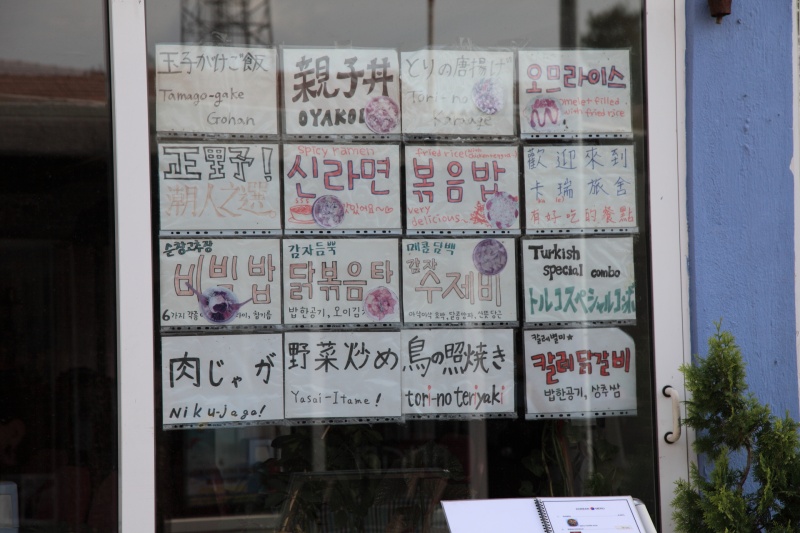 玉子かけご飯
Tamago-gake
Gohan
親子丼
OYAKO
とりの唐揚げ
Tori-no
Karaage
오므라이스
omelet filled
with fried rice
正點!
潮人之選
Spicy ramen
신라면
맛있어요~
fried rice
볶음밥
very
delicious
歡迎來到
卡瑞旅舍
有好吃的餐點
손창고추장
비빔밥
6가지 각종
감자듬뿍
닭볶음탕
밥한공기, 오이김치
매콤 담백
감자
수제비
Turkish
special combo
トルコスペシャルコンボ
肉じゃが
Niku-jaga!
野菜炒め
Yasai-Itame!
鳥の照焼き
tori-no teriyaki
칼레별미★
칼레닭갈비
밥한공기, 상추쌈